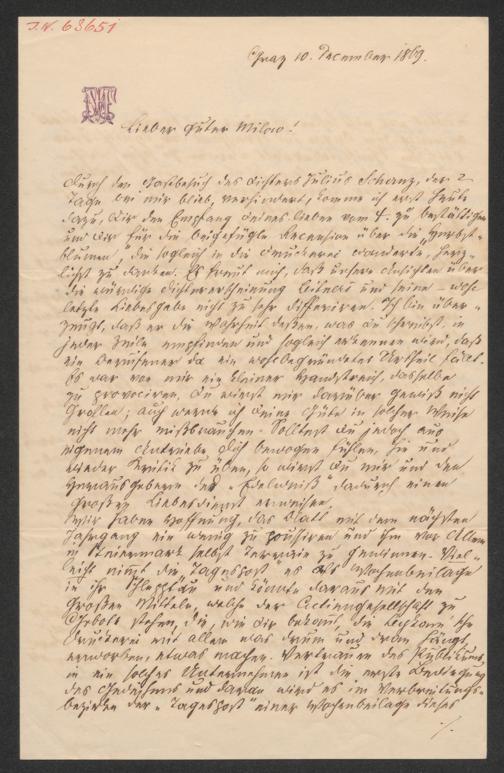 I.N. 63651
Graz 10. December 1869.
Lieber guter Milow!
Durch den Besuch des Dichters Julius Schanz, der 2
Tage bei mir blieb, verhindert, komme ich erst heute
dazu, Dir den Empfang Deines lieben vom 4. zu bestättigen
und Dir für die beigefügte Recension über die "Herbst-
blumen", die sogleich in die Druckerei wanderte, herz-
lichst zu danken. Es freut mich, daß unsere Ansichten über
die würdige Dichtererscheinung und seine – wohl
letzte Liebesgabe nicht zu sehr differiren. Ich bin über-
zeugt, daß er die Wahrheit dessen, was Du schreibst, in
jeder Zeile empfinden und sogleich erkennen wird, daß
ein Berufener da ein wohlbegründetes Urtheil fällt.
Es war von mir ein kleiner Handstreich, dasselbe
zu provociren, Du wirst mir darüber gewiß nicht
grollen; auch werde ich Deine Güte in solcher Weise
nicht mehr mißbrauchen. Solltest Du jedoch aus
eigenem Antriebe Dich bewogen fühlen, hie und
wieder Kritik zu üben, so wirst Du mir und den
Herausgebern des dadurch einen
großen Liebesdienst erweisen.
Wir haben Hoffnung, das Blatt mit dem nächsten
Jahrgang ein wenig zu poussiren und ihm vor Allem
in Steiermark selbst Terrain zu gewinnen. Viel-
leicht nimmt die "Tagespost" es als Wochenbeilage
in ihr Schlepptau und könnte daraus mit den
großen Mitteln, welche der Actiengesellschaft zu
Gebote stehen, die, wie Dir bekannt, die Leykam'sche
Druckerei mit allem was drum und dran hängt,
erworben, etwas machen. Vertrauen des Publikums
in ein solches Unternehmen ist die erste Bedingung
des Gedeihens und daran wird es im Verbreitungs-
bezirke der "Tagespost" einer Wochenbeilage dieses
./.